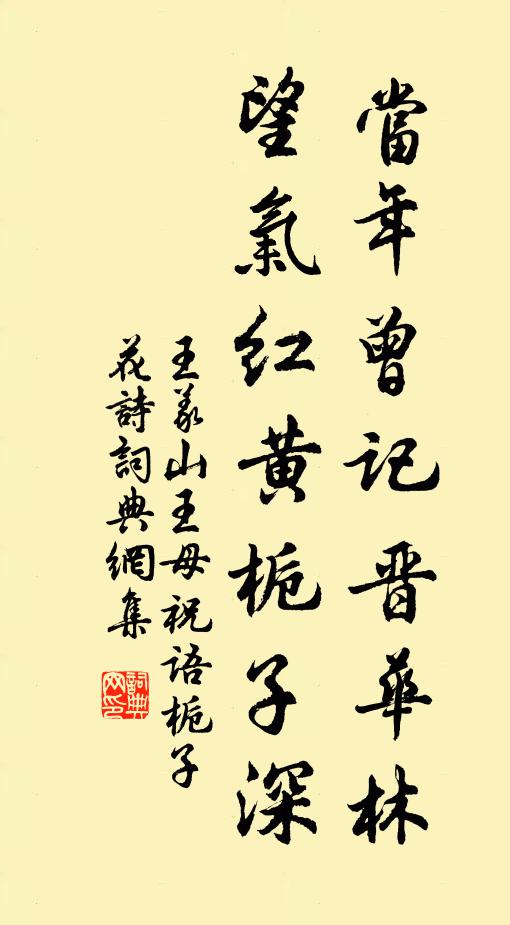 當年曾記晋華林
望氣紅黄栀子深
王義山王母祝語栀子
花詩詞典網集
詞典
网印